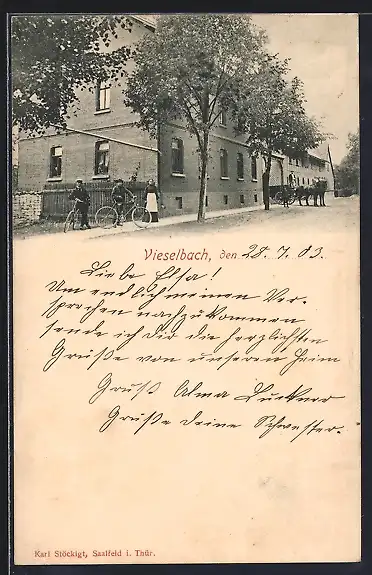 Vieselbach, den 28.7.03.
Liebe Elsa!
Um endlich meinen Ver-
sprechen nachzukommen
sende ich Dir die herzlichsten
Grüße von unseren Heim
Gruß Alma
Grüße deine Schwester.
Karl Stöckigt, Saalfeld i. Thür.